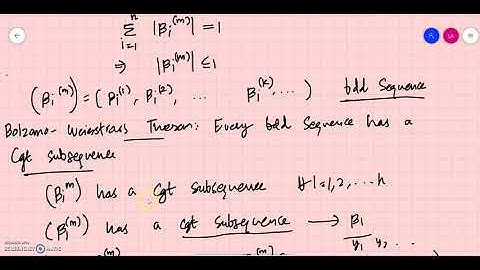 n
Σ |βi^(m)| = 1
i=1
⇒ |βi^(m)| ≤ 1
(βi^(m)) = (βi^(1), βi^(2), ... βi^(k), ...) bdd Sequence
Bolzano-Weierstrass Theorem: Every bdd Sequence has a
Cgt subsequence
(βi^m) has a Cgt Subsequence ∀ i=1,2,...n
(β1^(m)) has a cgt subsequence → β1
y1 y2 ...
SCREENCAST-O-MATIC